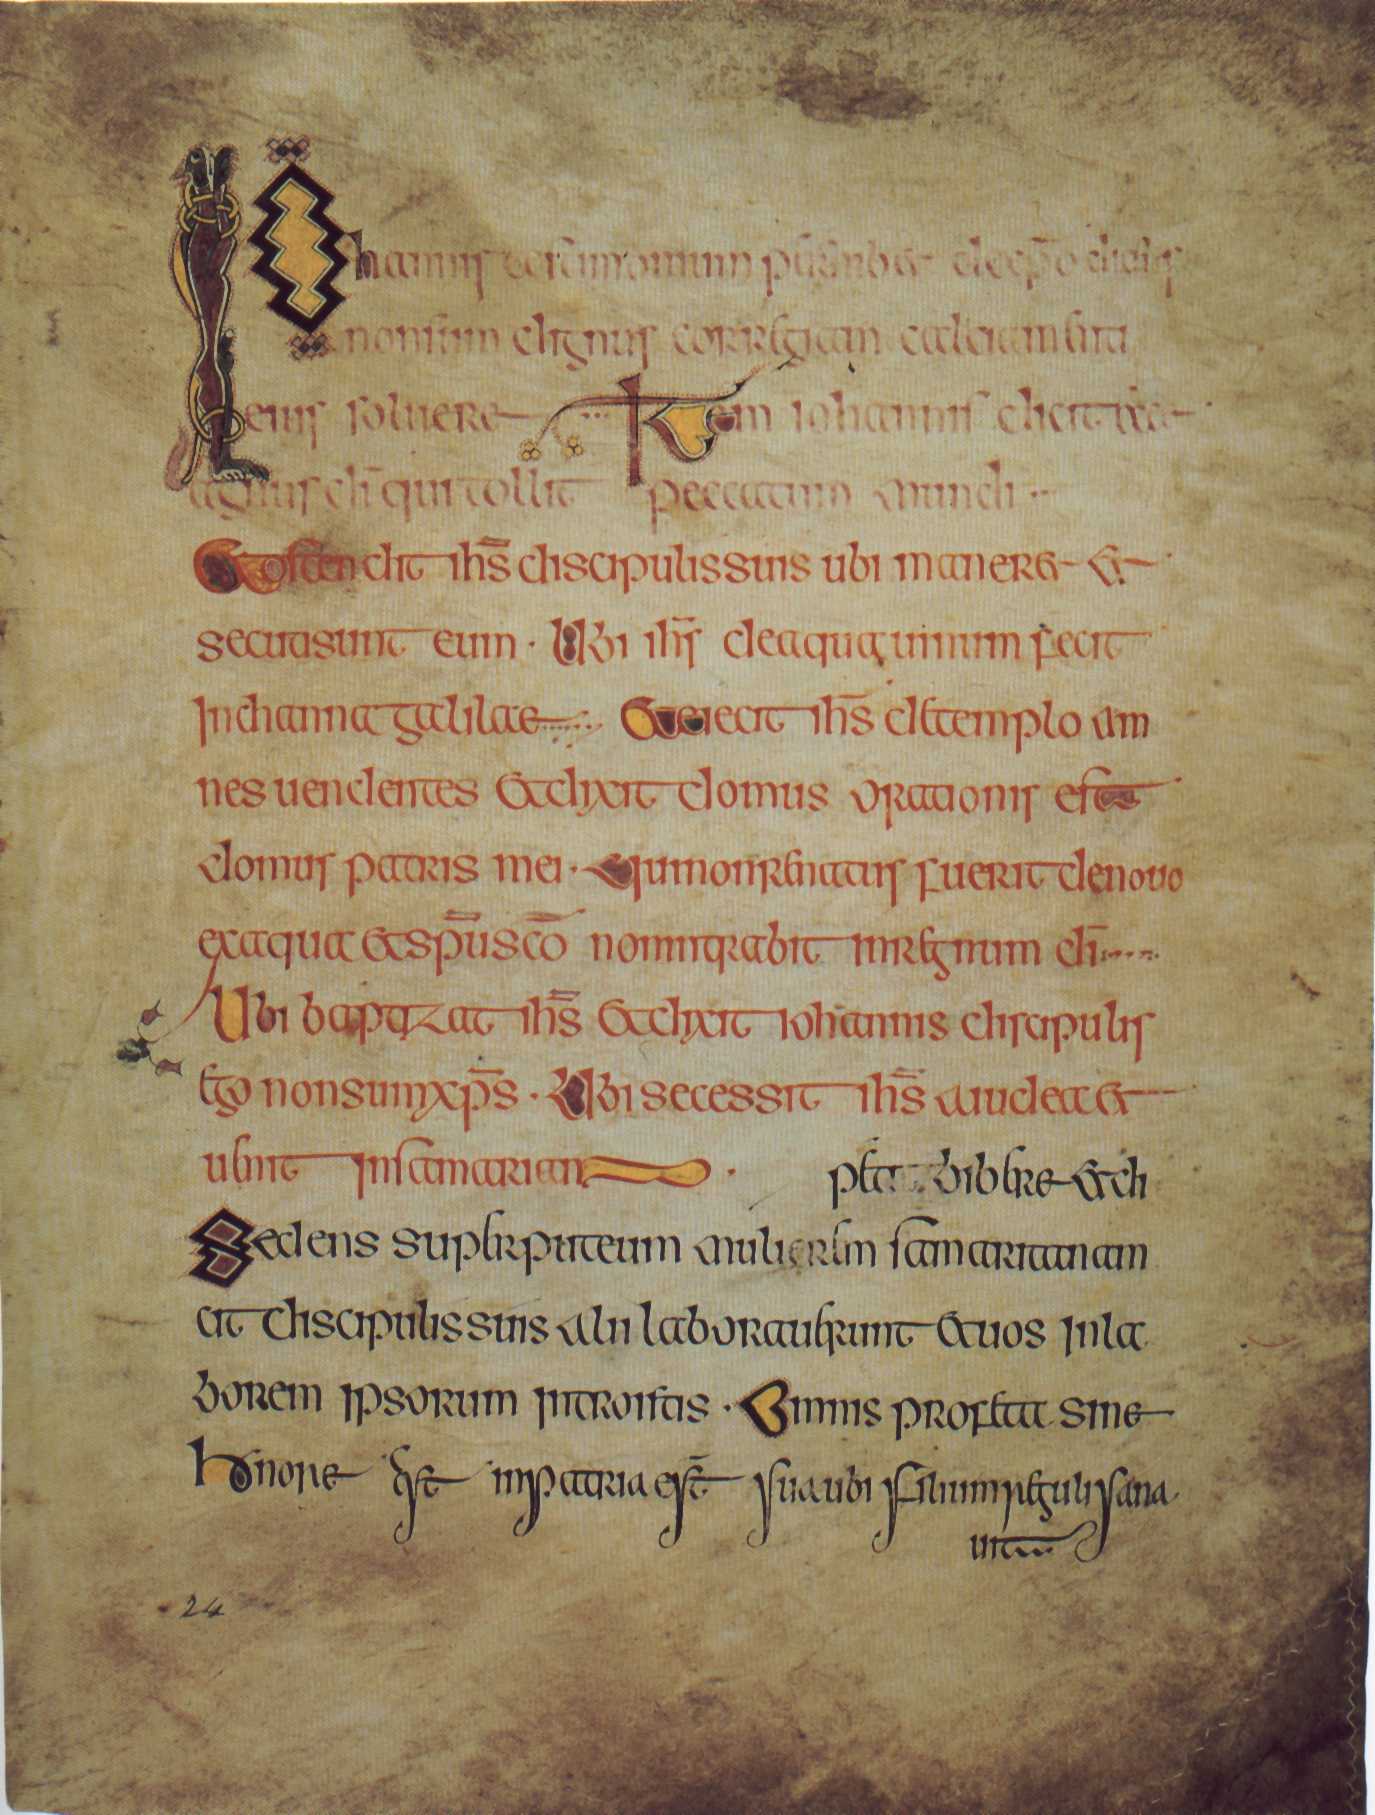 Iohannis testimonium perhibet de xp̄o dicens
non sum dignus corregiam calciamenti
eius soluere Item iohannis dicit ecce
agnus dī qui tollit peccatum mundi
Et ostendit ihs̄ discipulis suis ubi maneret et
secuti sunt eum · Ubi ihs̄ de aqua uinum fecit
In channa galilae Et eiecit ihs̄ de templo om
nes uendentes et dixit domus orationis est
domus patris mei · Qui non renatus fuerit denovo
ex aqua et sp̄u sc̄o non intrabit in regnum dī
Ubi baptizat ihs̄ et dixit iohannis discipulis
ego non sum xp̄s · Ubi secessit ihs̄ a iudea et
uenit in samariam petit bibere et di
Sedens super puteum mulierem samaritanam
cit discipulis suis alii laborauerunt et uos in la
borem ipsorum introistis · Omnis profeta sine
honore est in patria sua ubi filium reguli sana
uit
24